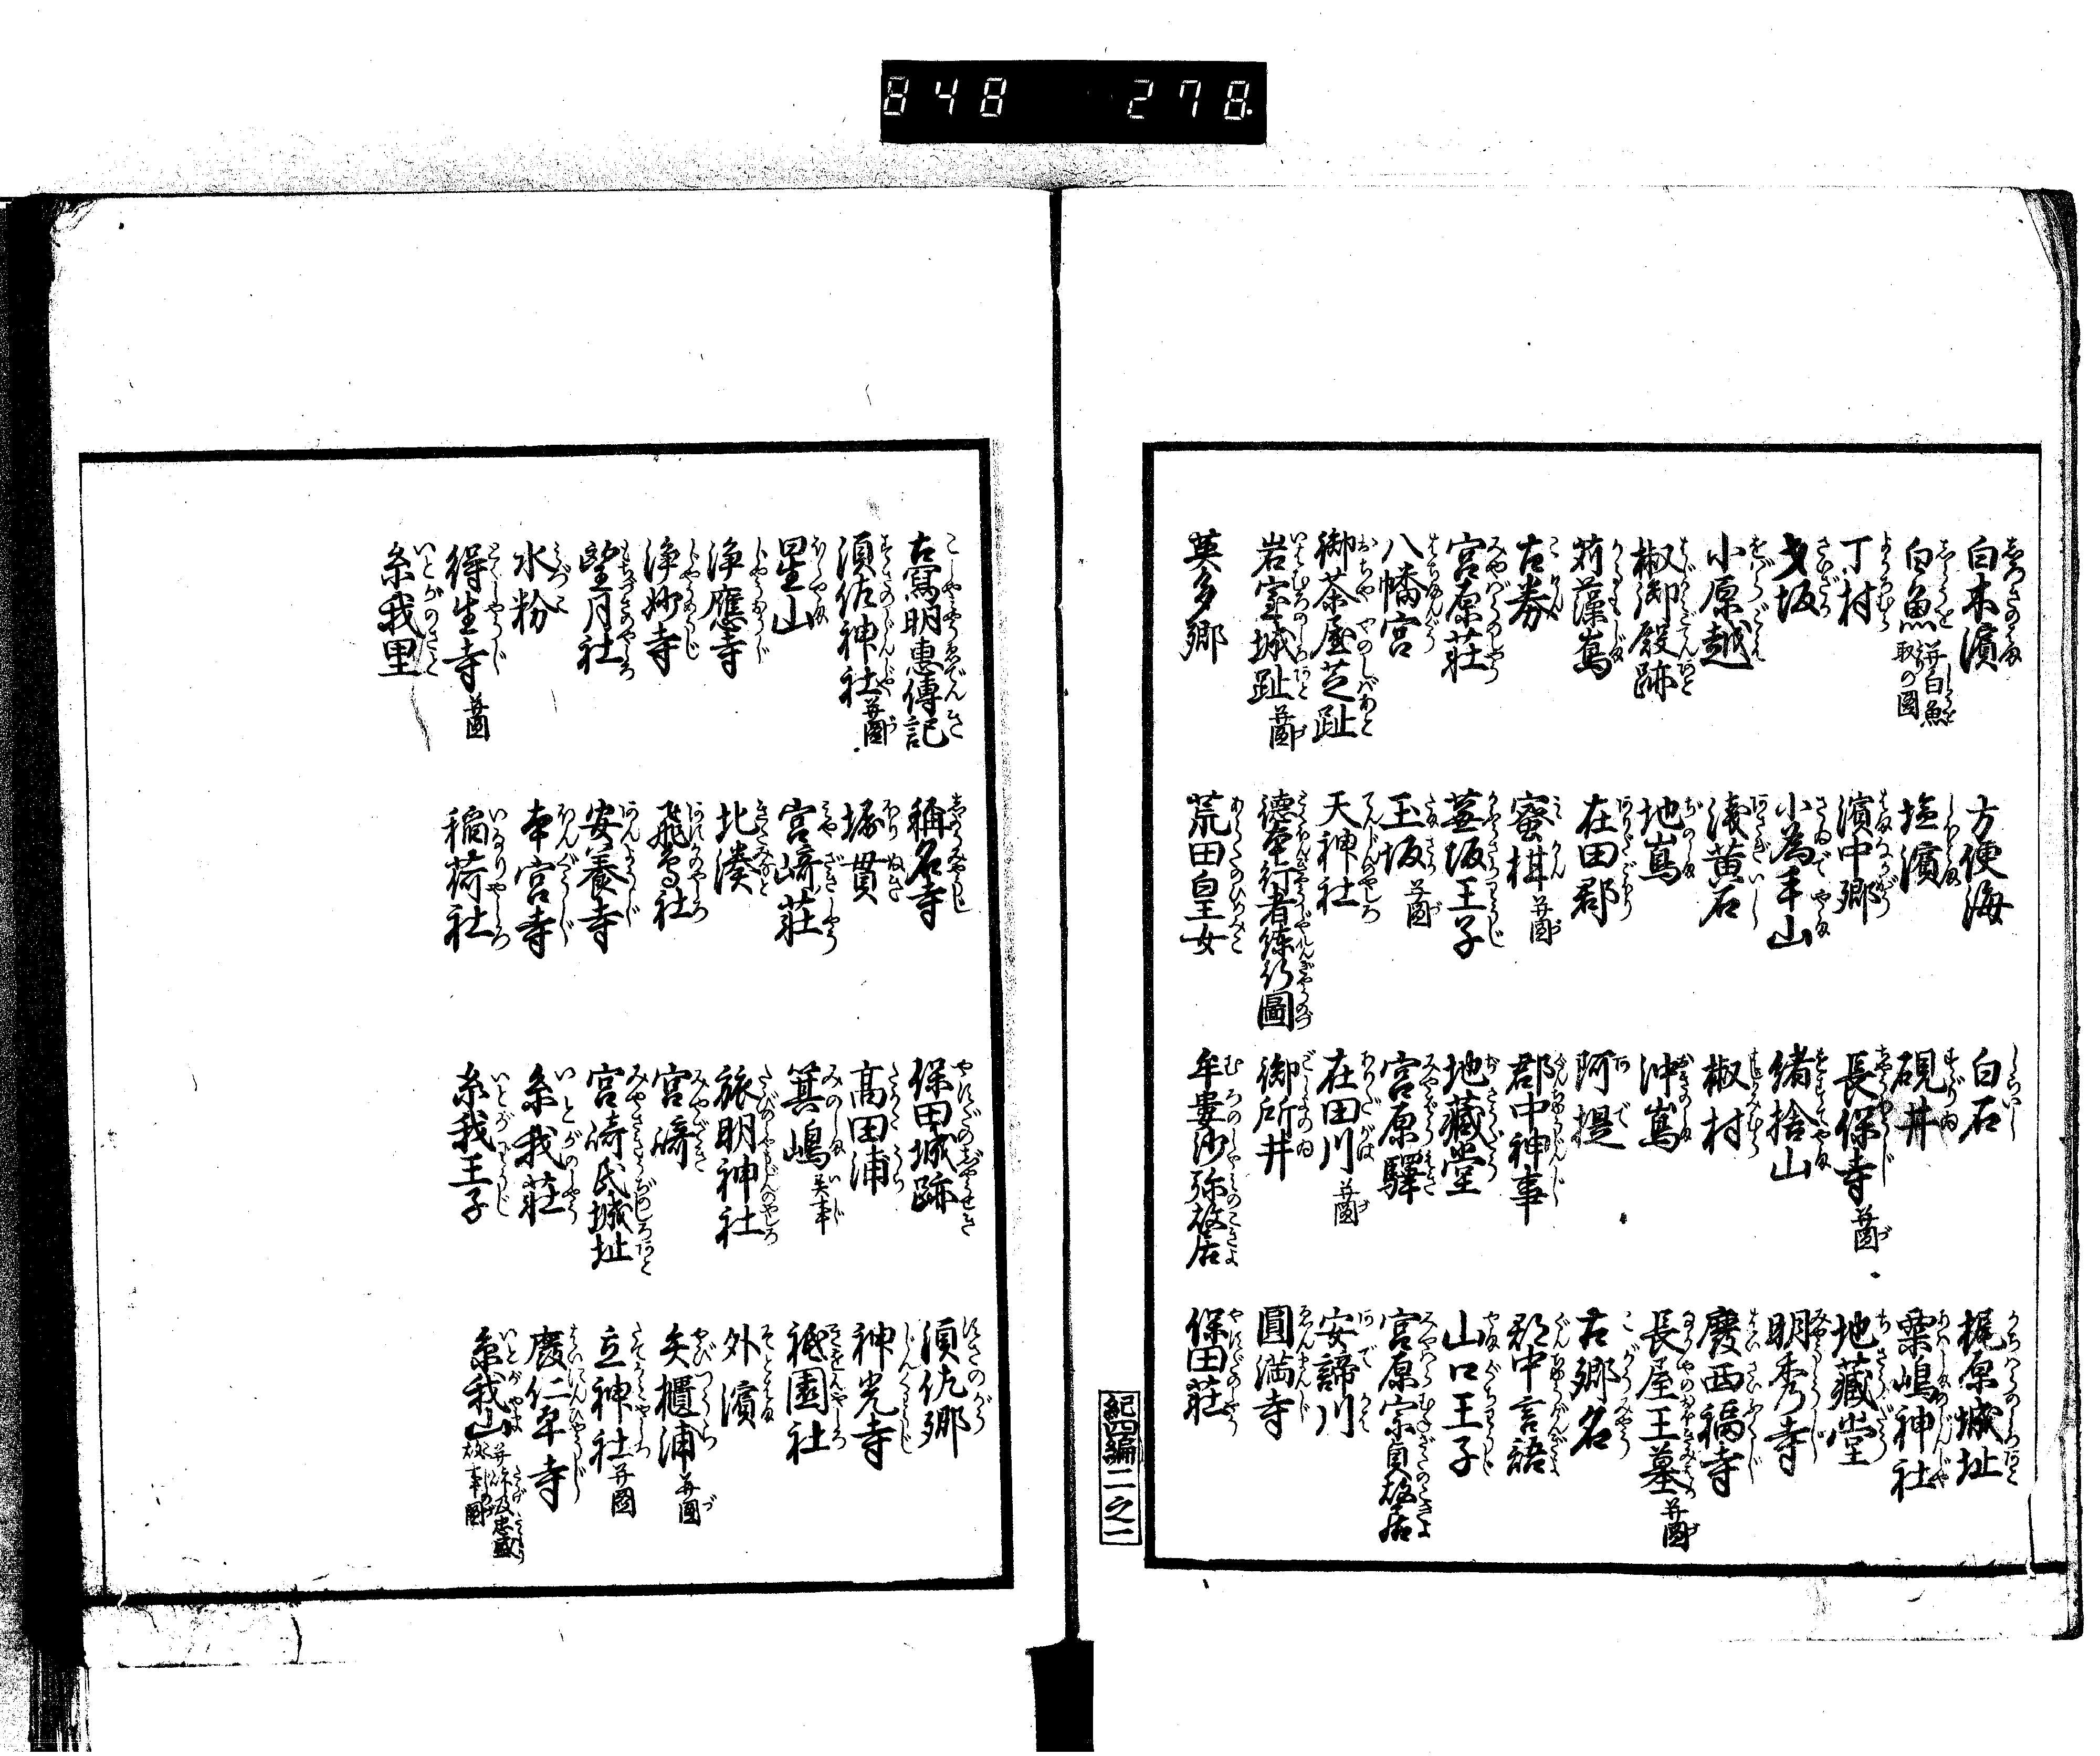 848 278
白木濱 方便海 白石 梶原城址
白魚 并白魚取の圖 塩濱 硯井 粟嶋神社
丁村 濱中郷 長保寺 并圖 地藏堂
才坂 小為手山 緒捨山 明秀寺
小原越 浅黄石 椒村 慶西福寺
椒御殿跡 地嶌 沖嶌 長屋王墓 并圖
苅藻嶌 在田郡 阿提 古郷名
古券 蜜柑 并圖 郡中神事 郡中言語
宮原荘 蕪坂王子 地藏堂 山口王子
八幡宮 玉坂 并圖 宮原驛 宮原宗貞故居
御茶屋芝趾 天神社 在田川 并圖 安諦川
岩室城趾 并圖 德本行者練行圖 御所井 圓満寺
英多郷 荒田皇女 牟婁沙弥故居 保田荘
紀四編二之一
古寫明惠傳記 稱名寺 保田城跡 須佐郷
須佐神社 并圖 堀貫 高田浦 神光寺
星山 宮﨑荘 箕嶋 異事 祗園社
浄應寺 北湊 旅明神社 外濱
浄妙寺 飛鳥社 宮﨑 矢櫃浦 并圖
望月社 安養寺 宮﨑氏城址 立神社 并圖
水粉 本宮寺 糸我荘 廢仁平寺
得生寺 并圖 稲荷社 糸我王子 糸我山 并 忠盛故事圖
糸我里